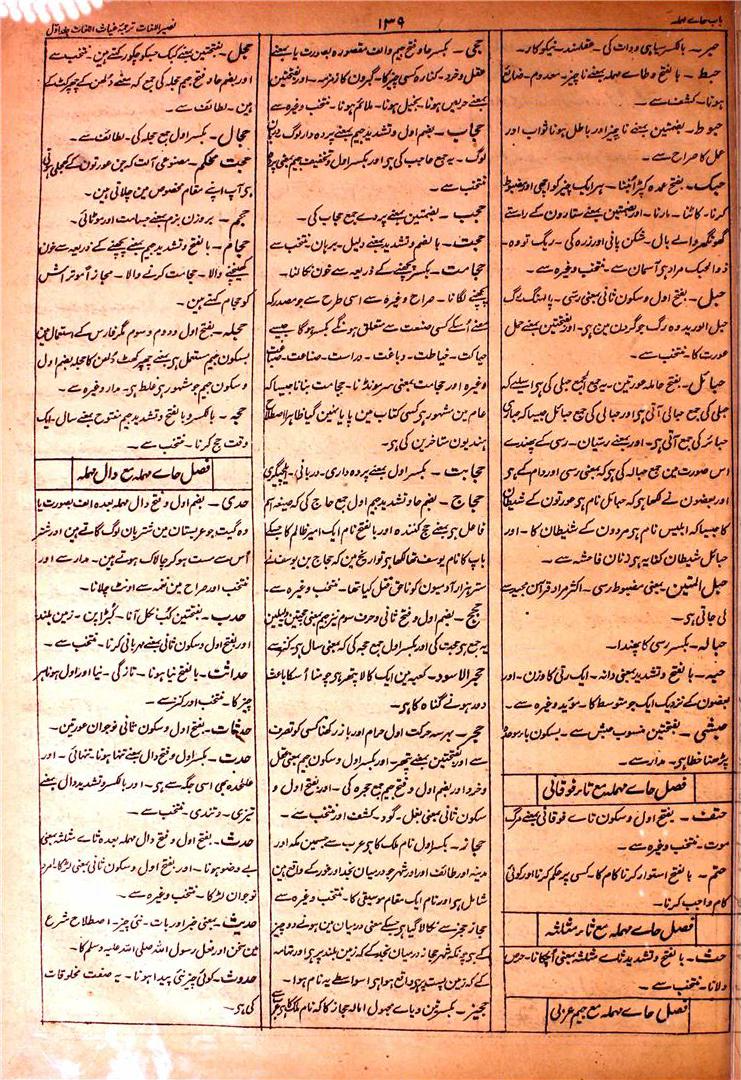 باب حاے مہملہ
۱۳۹
نصیر اللغات ترجمۂ غیاث اللغات جلد اول
حبر۔ بالکسر سیاہی دوات کی۔ عقلمند۔ نیکوکار۔
حبط۔ بالفتح وطاے مہملہ بمعنے ناچیز۔ معدوم۔ ضائع
ہونا۔ کشف سے۔
حبوط۔ بضمتین بمعنے ناچیز اور باطل ہونا ثواب اور
عمل کا صراح سے۔
حبک۔ بفتح عمدہ کپڑا بننا۔ ہر ایک چیز کو اچھی اور مضبوط
کرنا۔ کاٹنا۔ مارنا۔ اور بضمتین بمعنے ستارون کے راستے
گھونگھر والے بال۔ شکن پانی اور زرہ کی۔ ریگ تودہ۔
ذوالحبک مراد ہی آسمان سے۔ منتخب وغیرہ سے۔
حبل۔ بفتح اول وسکون ثانی بمعنی رسی۔
حبل الورید وہ رگ جو گردن مین ہی۔ اور بفتحتین بمعنے حمل
عورت کا۔ منتخب سے۔
حبائل۔ بفتح حاملہ عورتین۔ یہ جمع الجمع حبلی کی ہی اسلیے کہ
حبلی کی جمع حبالی آتی ہی اور حبالی کی جمع حبائل جیسا کہ حباری
حبائر کی جمع آتی ہی۔ اور بمعنے رسیان۔ رسی کے پھندے
اس صورت مین جمع حبالہ کی ہی کہ بمعنی رسی اور دام کے ہی
اور بعضون نے لکھا ہی کہ حبائل نام ہی عورتون کے شیطان
کا جیسا کہ ابلیس نام ہی مردون کے شیطان کا۔ اور
حبائل شیطان کنایہ ہی زنان فاحشہ سے۔
حبل المتین۔ بمعنی مضبوط رسی۔ اکثر مراد قرآن مجید سے
لی جاتی ہی۔
حبالہ۔ بکسر رسی کا پھندا۔
حبہ۔ بالفتح وتشدید بمعنی دانہ۔ ایک رتی کا وزن۔ اور
بعضون کے نزدیک ایک جو متوسط کا۔ مؤید وغیرہ سے۔
حبشی۔ بفتحتین منسوب حبش سے۔ بسکون باء موحدہ
پڑھنا خطا ہی۔ مدار سے۔
فصل حاے مہملہ مع تاء فوقانی
حتف۔ بفتح اول وسکون تاے فوقانی بمعنے مرگ
موت۔ منتخب وغیرہ سے۔
حتم۔ بالفتح استوار کرنا کام کا۔ کسی پر حکم کرنا اور کوئی
کام واجب کرنا۔
فصل حاے مہملہ مع ثاء مثلثہ
حث۔ بالفتح وتشدید ثاے مثلثہ بمعنی اُچکانا۔ حرص
دلانا۔ منتخب سے۔
فصل حاے مہملہ مع جیم عربی
حجی۔ بکسر حا وفتح جیم والف مقصورہ بصورت یا بمعنے
عقل وخرد۔ کنارہ کسی چیز کا۔ گبرون کا زمزمہ۔ اور بفتحتین
بمعنے حریص ہونا۔ بخیل ہونا۔ ملائم ہونا۔ منتخب وغیرہ سے
حجاب۔ بضم اول وتشدید جیم بمعنے پردہ دار لوگ۔ دربان
لوگ۔ یہ جمع حاجب کی ہی اور بکسر اول وتخفیف جیم بمعنی پردہ
منتخب سے۔
حجب۔ بضمتین بمعنے پردے جمع حجاب کی۔
حجت۔ بالضم وتشدید بمعنے دلیل۔ برہان۔ منتخب سے
حجامت۔ بکسر پچھنے کے ذریعہ سے خون کا نکالنا۔
پچھنے لگانا۔ صراح وغیرہ سے اسی طرح سے جو مصدر کہ
معنے اُسکے کسی صنعت سے متعلق ہونگے بکسر ہوگا جیسے
حیاکت۔ خیاطت۔ دباغت۔ دراست۔ صناعت۔
وغیرہ اور حجامت بمعنی سر مونڈنا۔ حجامت بنانا جیسا کہ
عام مین مشہور ہی کسی کتاب مین پایا نہین گیا ظاہرا اصطلاح
ہندیون متاخرین کی ہی۔
حجابت۔ بکسر اول بمعنے پردہ داری۔ دربانی۔
حجاج۔ بضم حا وتشدید جیم اول جمع حاج کی کہ صیغہ اسم
فاعل ہی بمعنے حج کنندہ اور بالفتح نام ایک امیر ظالم کا جسکے
باپ کا نام یوسف تھا لکھا ہی تواریخ مین کہ حجاج بن یوسف نے
ستر ہزار آدمیون کو ناحق قتل کیا تھا۔ منتخب وغیرہ سے۔
حجج۔ بضم اول وفتح ثانی وحرف سوم نیز جیم بمعنی حجتین دلیلین
یہ جمع ہی حجت کی اور بکسر اول جمع حجہ کی کہ بمعنی سال ہی کنز سے
حجر الاسود۔ کعبہ مین ایک کالا پتھر ہی چومنا اُسکا باعث
دور ہونے گناہ کا ہی۔
حجر۔ بہر سہ حرکت اول حرام اور باز رکھنا کسی کو تصرف
سے اور بفتحتین بمعنے پتھر۔ اور بکسر اول وسکون جیم بمعنی عقل
وخرد اور بضم اول وفتح جیم جمع حجرہ کی۔ اور بفتح اول و
سکون ثانی بمعنی بغل۔ گود۔ کشف اور منتخب سے۔
حجاز۔ بکسر اول نام ملک کا ہی عرب سے جسمین مکہ اور
مدینہ اور طائف اور اور شہر جو درمیان نجد اور غور کے واقع ہین
شامل ہی اور نام ایک مقام موسیقی کا۔ منتخب وغیرہ سے
حجاز حجز سے نکالا گیا ہی جسکے معنی درمیان مین ہونے دو چیز
کے ہی چونکہ شہر حجاز درمیان نجد کے کہ زمین بلند پر ہی اور تہامہ
کے کہ زمین پست پر ہی واقع ہوا ہی اسواسطے یہ نام ہوا۔
حجیز۔ بکسرتین ویاے مجہول امالہ حجاز کا کہ نام ملک کا ہی عرب سے
حجل۔ بفتحتین بمعنے کبک جسکو چکور کہتے ہین۔ منتخب سے
اور بضم حا وفتح جیم حجلہ کی جمع کہ بمعنے دُلھن کے چھپرکھٹ کے
ہین۔ لطائف سے۔
حجال۔ بکسر اول جمع حجلہ کی۔ لطائف سے۔
حجت محکم۔ مصنوعی آلت کہ جن عورتون کے کھجلی ہوتی
ہی آپ اپنے مقام مخصوص مین چلاتی ہین۔
حجم۔ بروزن بزم بمعنے جسامت اور موٹائی۔
حجام۔ بالفتح وتشدید جیم بمعنے پچھنے کے ذریعہ سے خون
کھینچنے والا۔ حجامت کرنے والا۔ مجازاً موتراش
کو حجام کہتے ہین۔
حجلہ۔ بفتح اول ودوم وسوم مگر فارس کے استعمال مین
بسکون جیم مستعمل ہی بمعنے چھپرکھٹ دُلھن کا حجلہ بضم اول
وسکون جیم جو مشہور ہی غلط ہی۔ مدار وغیرہ سے۔
حجہ۔ بالکسر و بالفتح وتشدید جیم مفتوح بمعنے سال۔ ایک
وقت حج کرنا۔ منتخب سے۔
فصل حاے مہملہ مع دال مہملہ
حدی۔ بضم اول وفتح دال مہملہ بعدہ الف بصورت یا
وہ گیت جو عربستان مین شتربان لوگ گاتے ہین اور شتر
اُس سے مست ہوکر چالاک ہوتے ہین۔ مدار سے اور
منتخب اور صراح مین نغمہ سے اونٹ چلانا۔
حدب۔ بفتحتین کُب نکل آنا۔ کُبڑاپن۔ زمین بلند
اور بفتح اول وسکون ثانی بمعنے مہربانی کرنا۔ منتخب سے۔
حداثت۔ بالفتح نیا ہونا۔ تازگی۔ نیا اور اول ہونا ہر
چیز کا۔ منتخب اور کنز سے۔
حدثات۔ بفتح اول وسکون ثانی نوجوان عورتین۔
حدت۔ بکسر اول وفتح دال بمعنے تنہا ہونا۔ تنہائی۔ اور
علٰحدہ بھی اسی جگہ سے ہی۔ اور بالکسر وتشدید دال بمعنے
تیزی۔ وتندی۔ منتخب سے۔
حدث۔ بفتح اول وفتح دال مہملہ بعدہ ثاے مثلثہ بمعنی
بے وضو ہونا۔ اور بفتح اول وسکون ثانی بمعنی لڑکا۔ امرد
نوجوان لڑکا۔ منتخب وغیرہ سے۔
حدیث۔ بمعنی خبر اور بات۔ نئی چیز۔ اصطلاح شرع
مین سخن اور فعل رسول اللہ صلی اللہ علیہ وسلم کا۔
حدوث۔ کوئی چیز نئی پیدا ہونا۔ یہ صفت مخلوقات
کی ہی۔